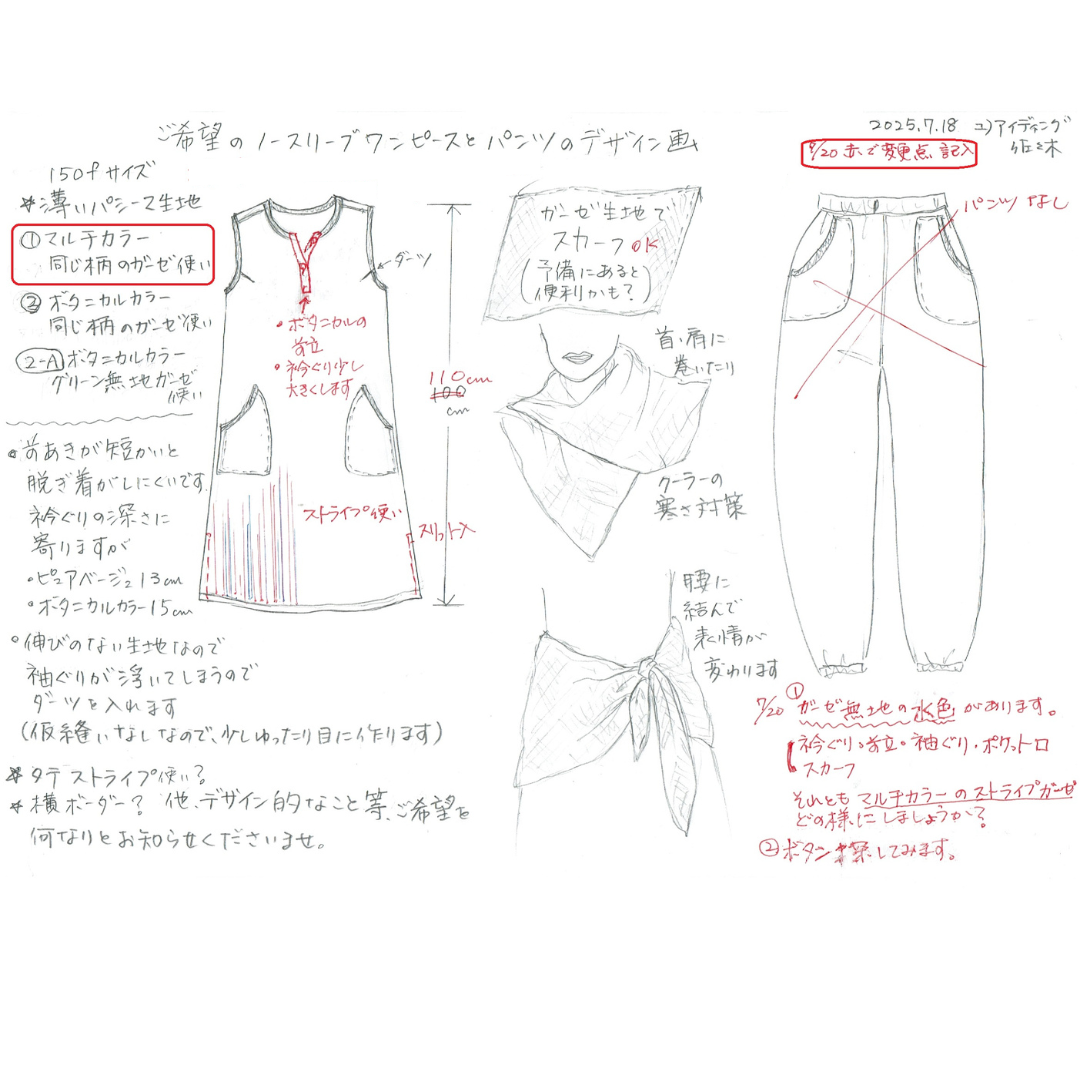 ご希望のノースリーブワンピースとパンツのデザイン画
2025.7.18 ユ)アイディング
佐々木
7/20 赤で変更点 記入
150fサイズ
*薄いパシーマ生地
①マルチカラー
同じ柄のガーゼ使い
②ボタニカルカラー
同じ柄のガーゼ使い
2-A ボタニカルカラー
グリーン無地ガーゼ
使い
・前あきが短かいと
脱ぎ着がしにくいです。
衿ぐりの深さに
寄りますが
・ピュアベージュ13cm
・ボタニカルカラー15cm
・伸びのない生地なので
袖ぐりが浮いてしまうので
ダーツを入れます
(仮縫いなしなので、少しゆったり目に作ります)
*タテストライプ使い?
*横ボーダー? 他、デザイン的なこと等、ご希望を
何なりとお知らせくださいませ。
ダーツ
・ボタニカルの
前立
・衿ぐり少し
大きくします
ストライプ使い
スリット入
110cm
100
cm
ガーゼ生地で
スカーフOK
(予備にあると
便利かも?)
首・肩に
巻いたり
クーラーの
寒さ対策
腰に
結んで
表情が
変わります
パンツなし
7/20 ①ガーゼ無地の水色があります。
衿ぐり・前立・袖ぐり・ポケット口
スカーフ
それともマルチカラーのストライプガーゼ
どの様にしましょうか?
②ボタン探してみます。